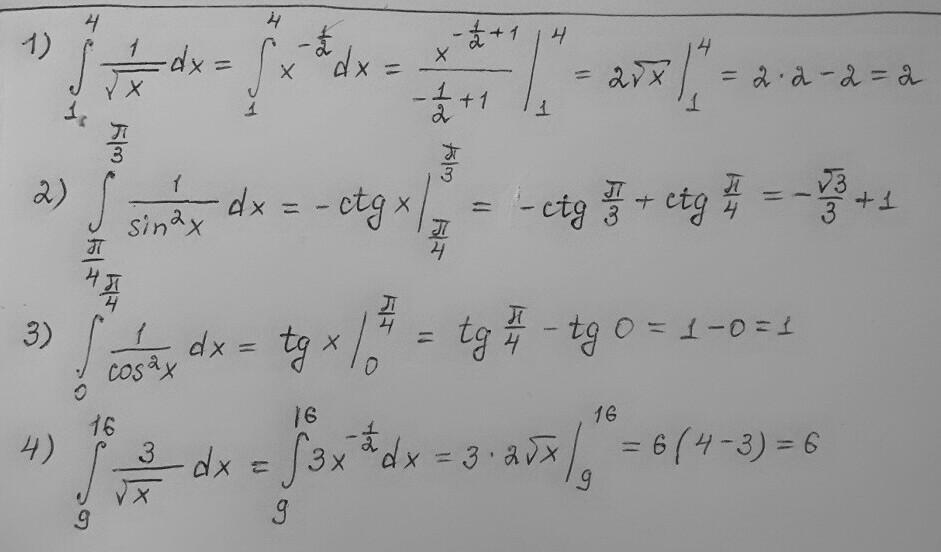 1) ∫₁⁴ 1/√x dx = ∫₁⁴ x^(-1/2) dx = x^(-1/2+1)/(-1/2+1) |₁⁴ = 2√x |₁⁴ = 2·2-2=2
2) ∫_(π/4)^(π/3) 1/sin²x dx = -ctg x |_(π/4)^(π/3) = -ctg π/3 + ctg π/4 = -√3/3 + 1
3) ∫₀^(π/4) 1/cos²x dx = tg x |₀^(π/4) = tg π/4 - tg 0 = 1-0=1
4) ∫₉¹⁶ 3/√x dx = ∫₉¹⁶ 3x^(-1/2) dx = 3·2√x |₉¹⁶ = 6(4-3)=6